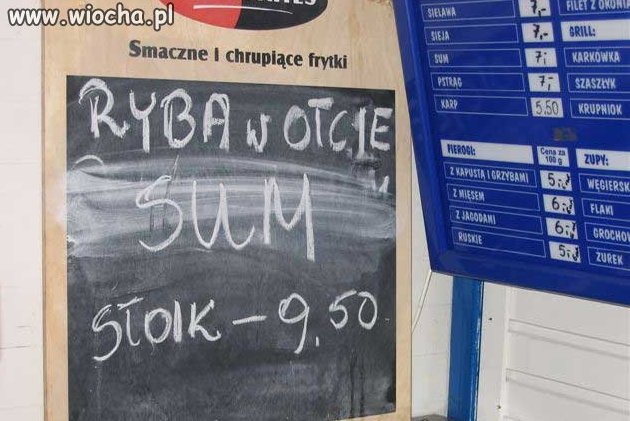 www.wiocha.pl
Smaczne i chrupiące frytki
RYBA w OŁCIE
SUM
SŁOIK - 9.50
SIELAWA 7,-
SIEJA 7,-
SUM 7,-
PSTRĄG 7,-
KARP 5.50
FILET Z OKONIA
GRILL:
KARKÓWKA
SZASZŁYK
KRUPNIOK
PIEROGI: Cena za 100 g
Z KAPUSTĄ I GRZYBAMI 5,-
Z MIĘSEM 6,-
Z JAGODAMI 6,-
RUSKIE 5,-
ZUPY:
WĘGIERSK
FLAKI
GROCHOW
ŻUREK